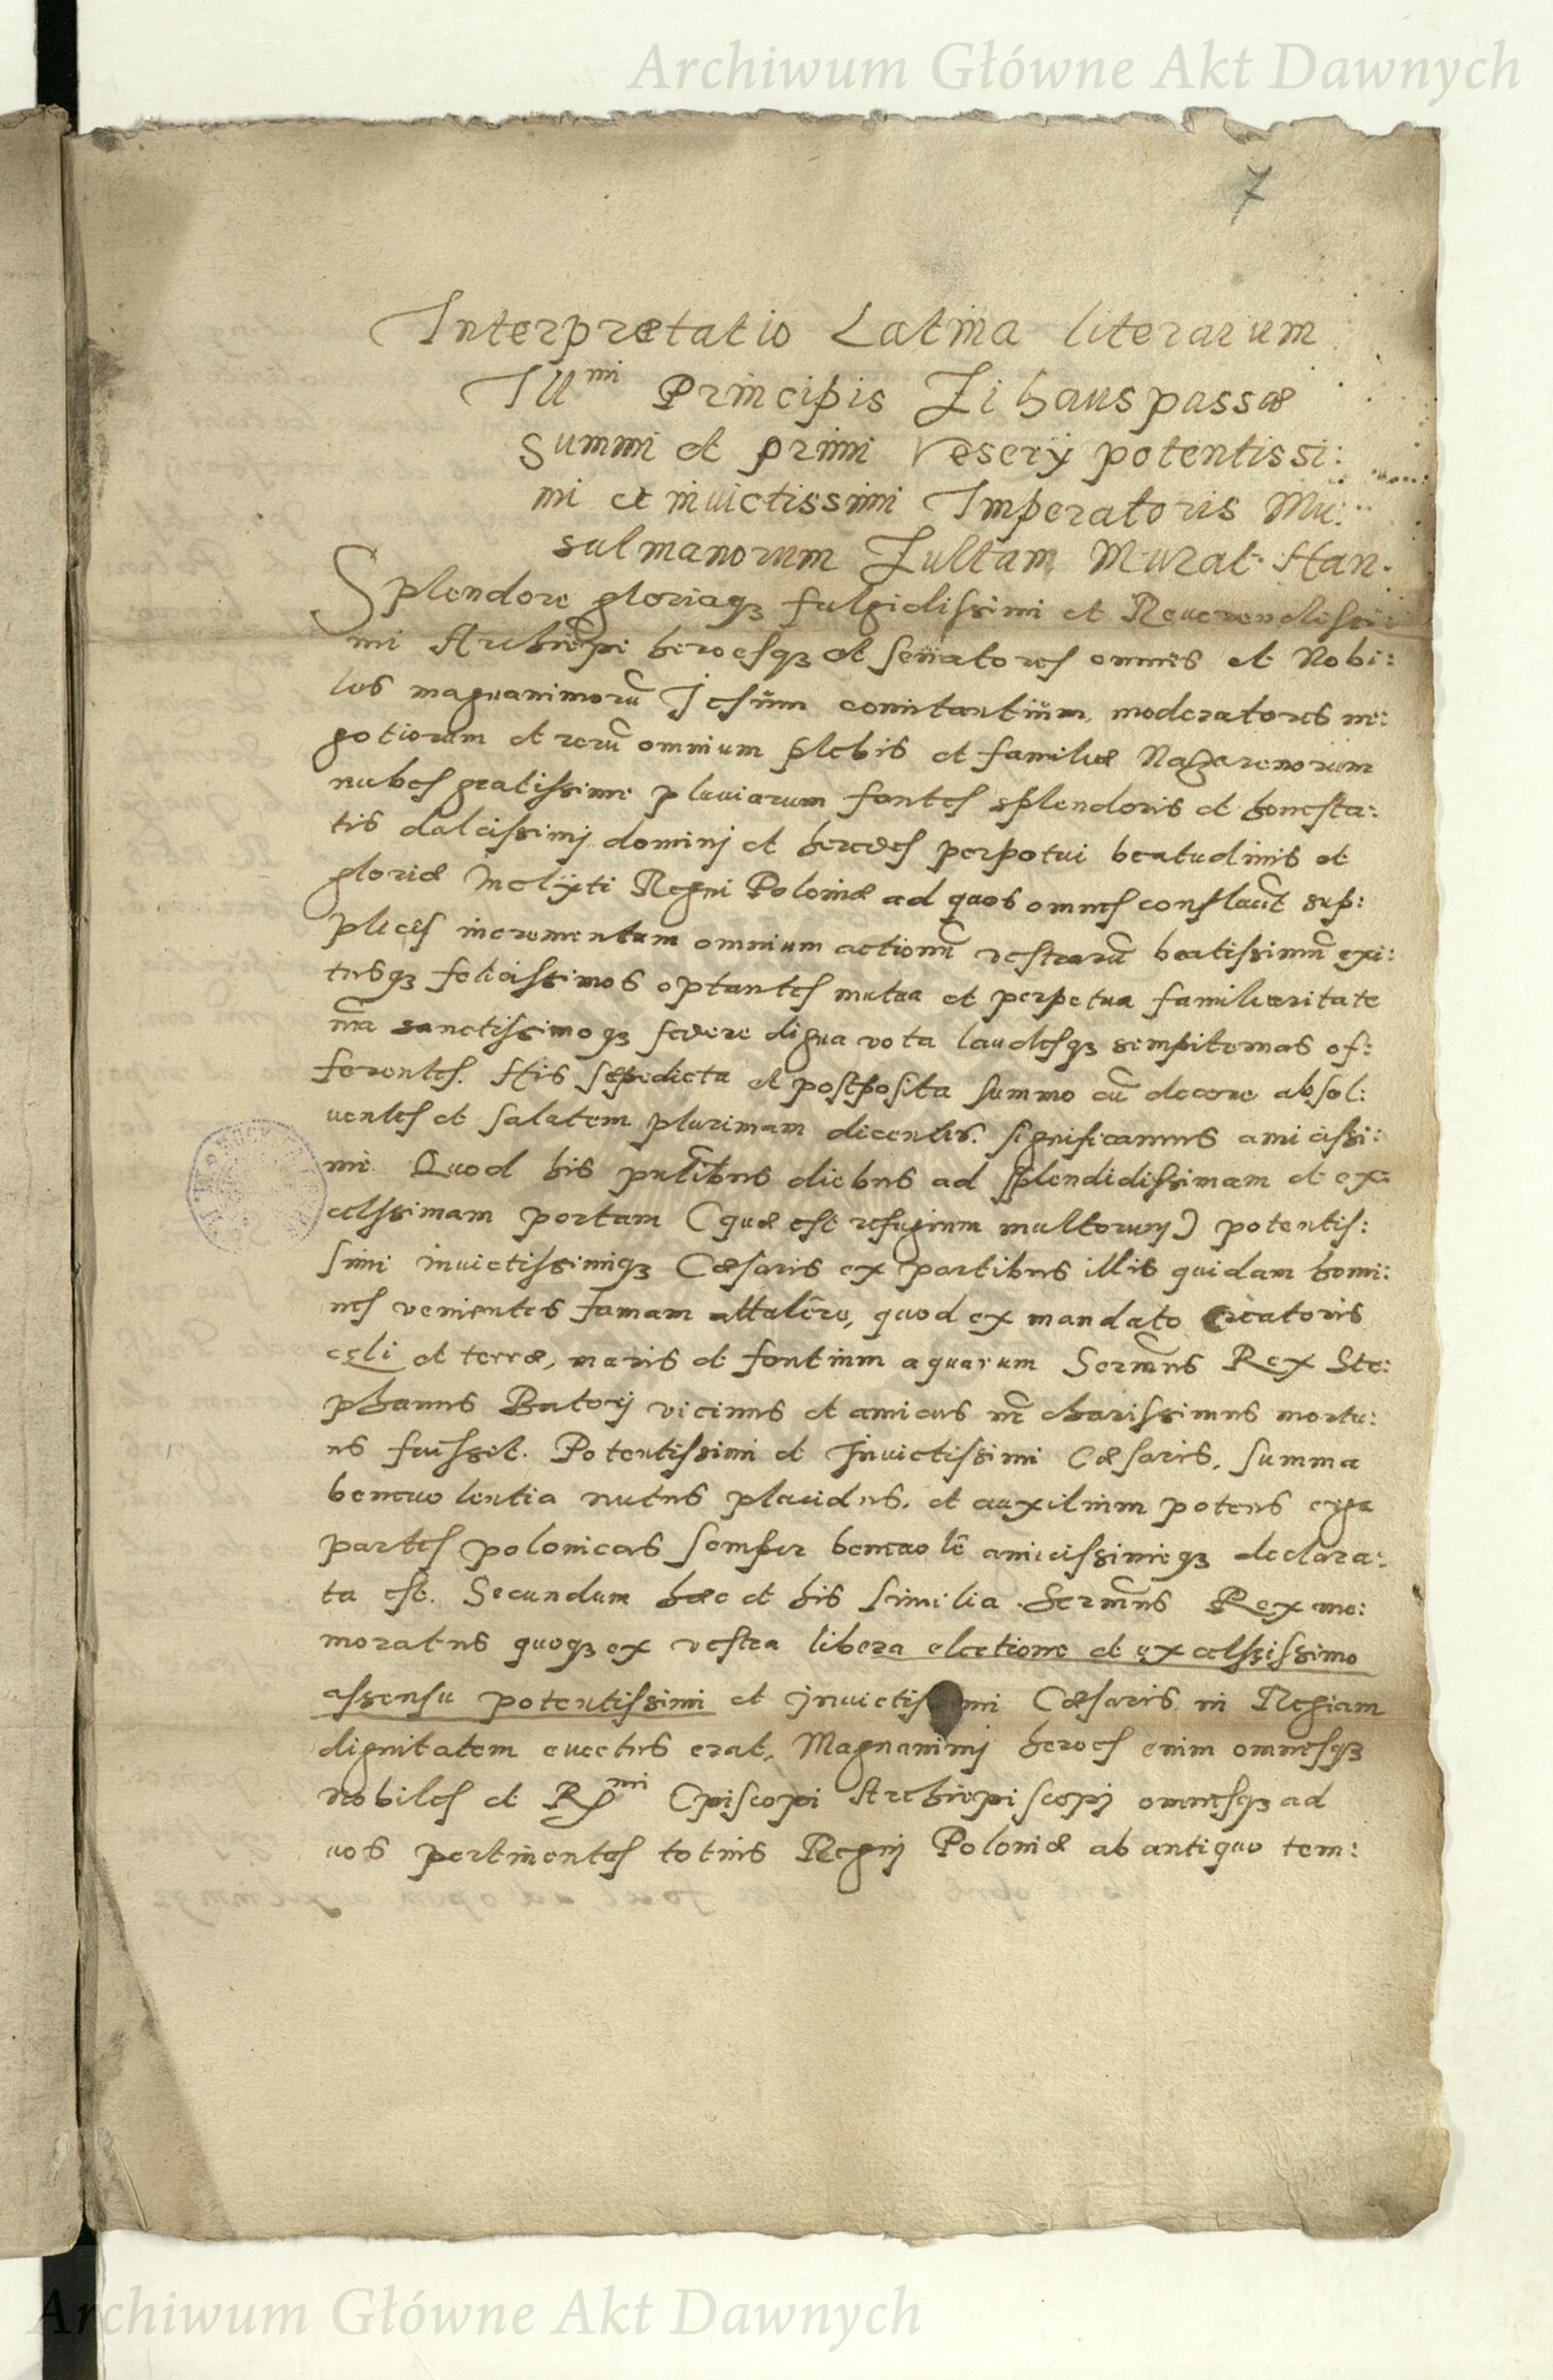 Archiwum Główne Akt Dawnych
7
Interpretatio Latina literarum
Illmi Principis Zihaus passæ
Summi et primi Veserÿ potentissi:
mi et invictissimi Imperatoris Mu:
sulmanorum Zultam Murat Han.
Splendore gloriaqꝫ fulgidissimi et Reverendissi:
mi Archiepi heroesqꝫ et senatores omnes et Nobi:
les magnanimorũ Jesum comitantium, moderatores ne:
gotiorum et rerũ omnium plebis et familiæ Nazarenorum
nubes gratissime pluviarum fontes splendoris et honesta:
tis dulcissimj dominj et heredes perpetui beatudinis et
gloriæ Inclÿti Regni Poloniæ ad quos omnes confluũt sup:
plices incrementum omnium actionũ vestrarũ beatissimũ exi:
tusqꝫ felicissimos optantes mutua et perpetua familiaritate
nr̃a sanctissimoqꝫ federe digna vota laudesqꝫ sempiternas of:
ferentes. His sępedicta et postposita summo cũ decore absol:
ventes et salutem plurimam dicentes. significamus amicissi:
me Quod his pñtibus diebus ad splendidissimam et ex
celssimam portam (quæ est refugium multorum) potentis:
simi invictissimiqꝫ Cæsaris ex partibus illis quidam homi:
nes venientes famam attulêre, quod ex mandato Creatoris
cęli et terræ, maris et fontium aquarum Serm̃us Rex Ste:
phanus Batorj vicinus et amicus nr̃ charissimus mortu:
us fuissit. Potentissimi et Invictissimi Cæsaris, summa
benevolentia nutus placidus, et auxilium potens erga
partes polonicas semper benevolẽ amicissimeqꝫ declara:
ta est. Secundum hæc et his similia Serm̃us Rex me:
moratus quoqꝫ ex vestra libera electione et excelssissimo
assensu potentissimi et invictissimi Cæsaris in Regiam
dignitatem evectus erat, Magnanimj heroes enim omnesqꝫ
nobiles et Rmi Episcopi Archiepiscopj omnesqꝫ ad
vos pertinentes totius Regnj Poloniæ ab antiquo tem:
Archiwum Główne Akt Dawnych